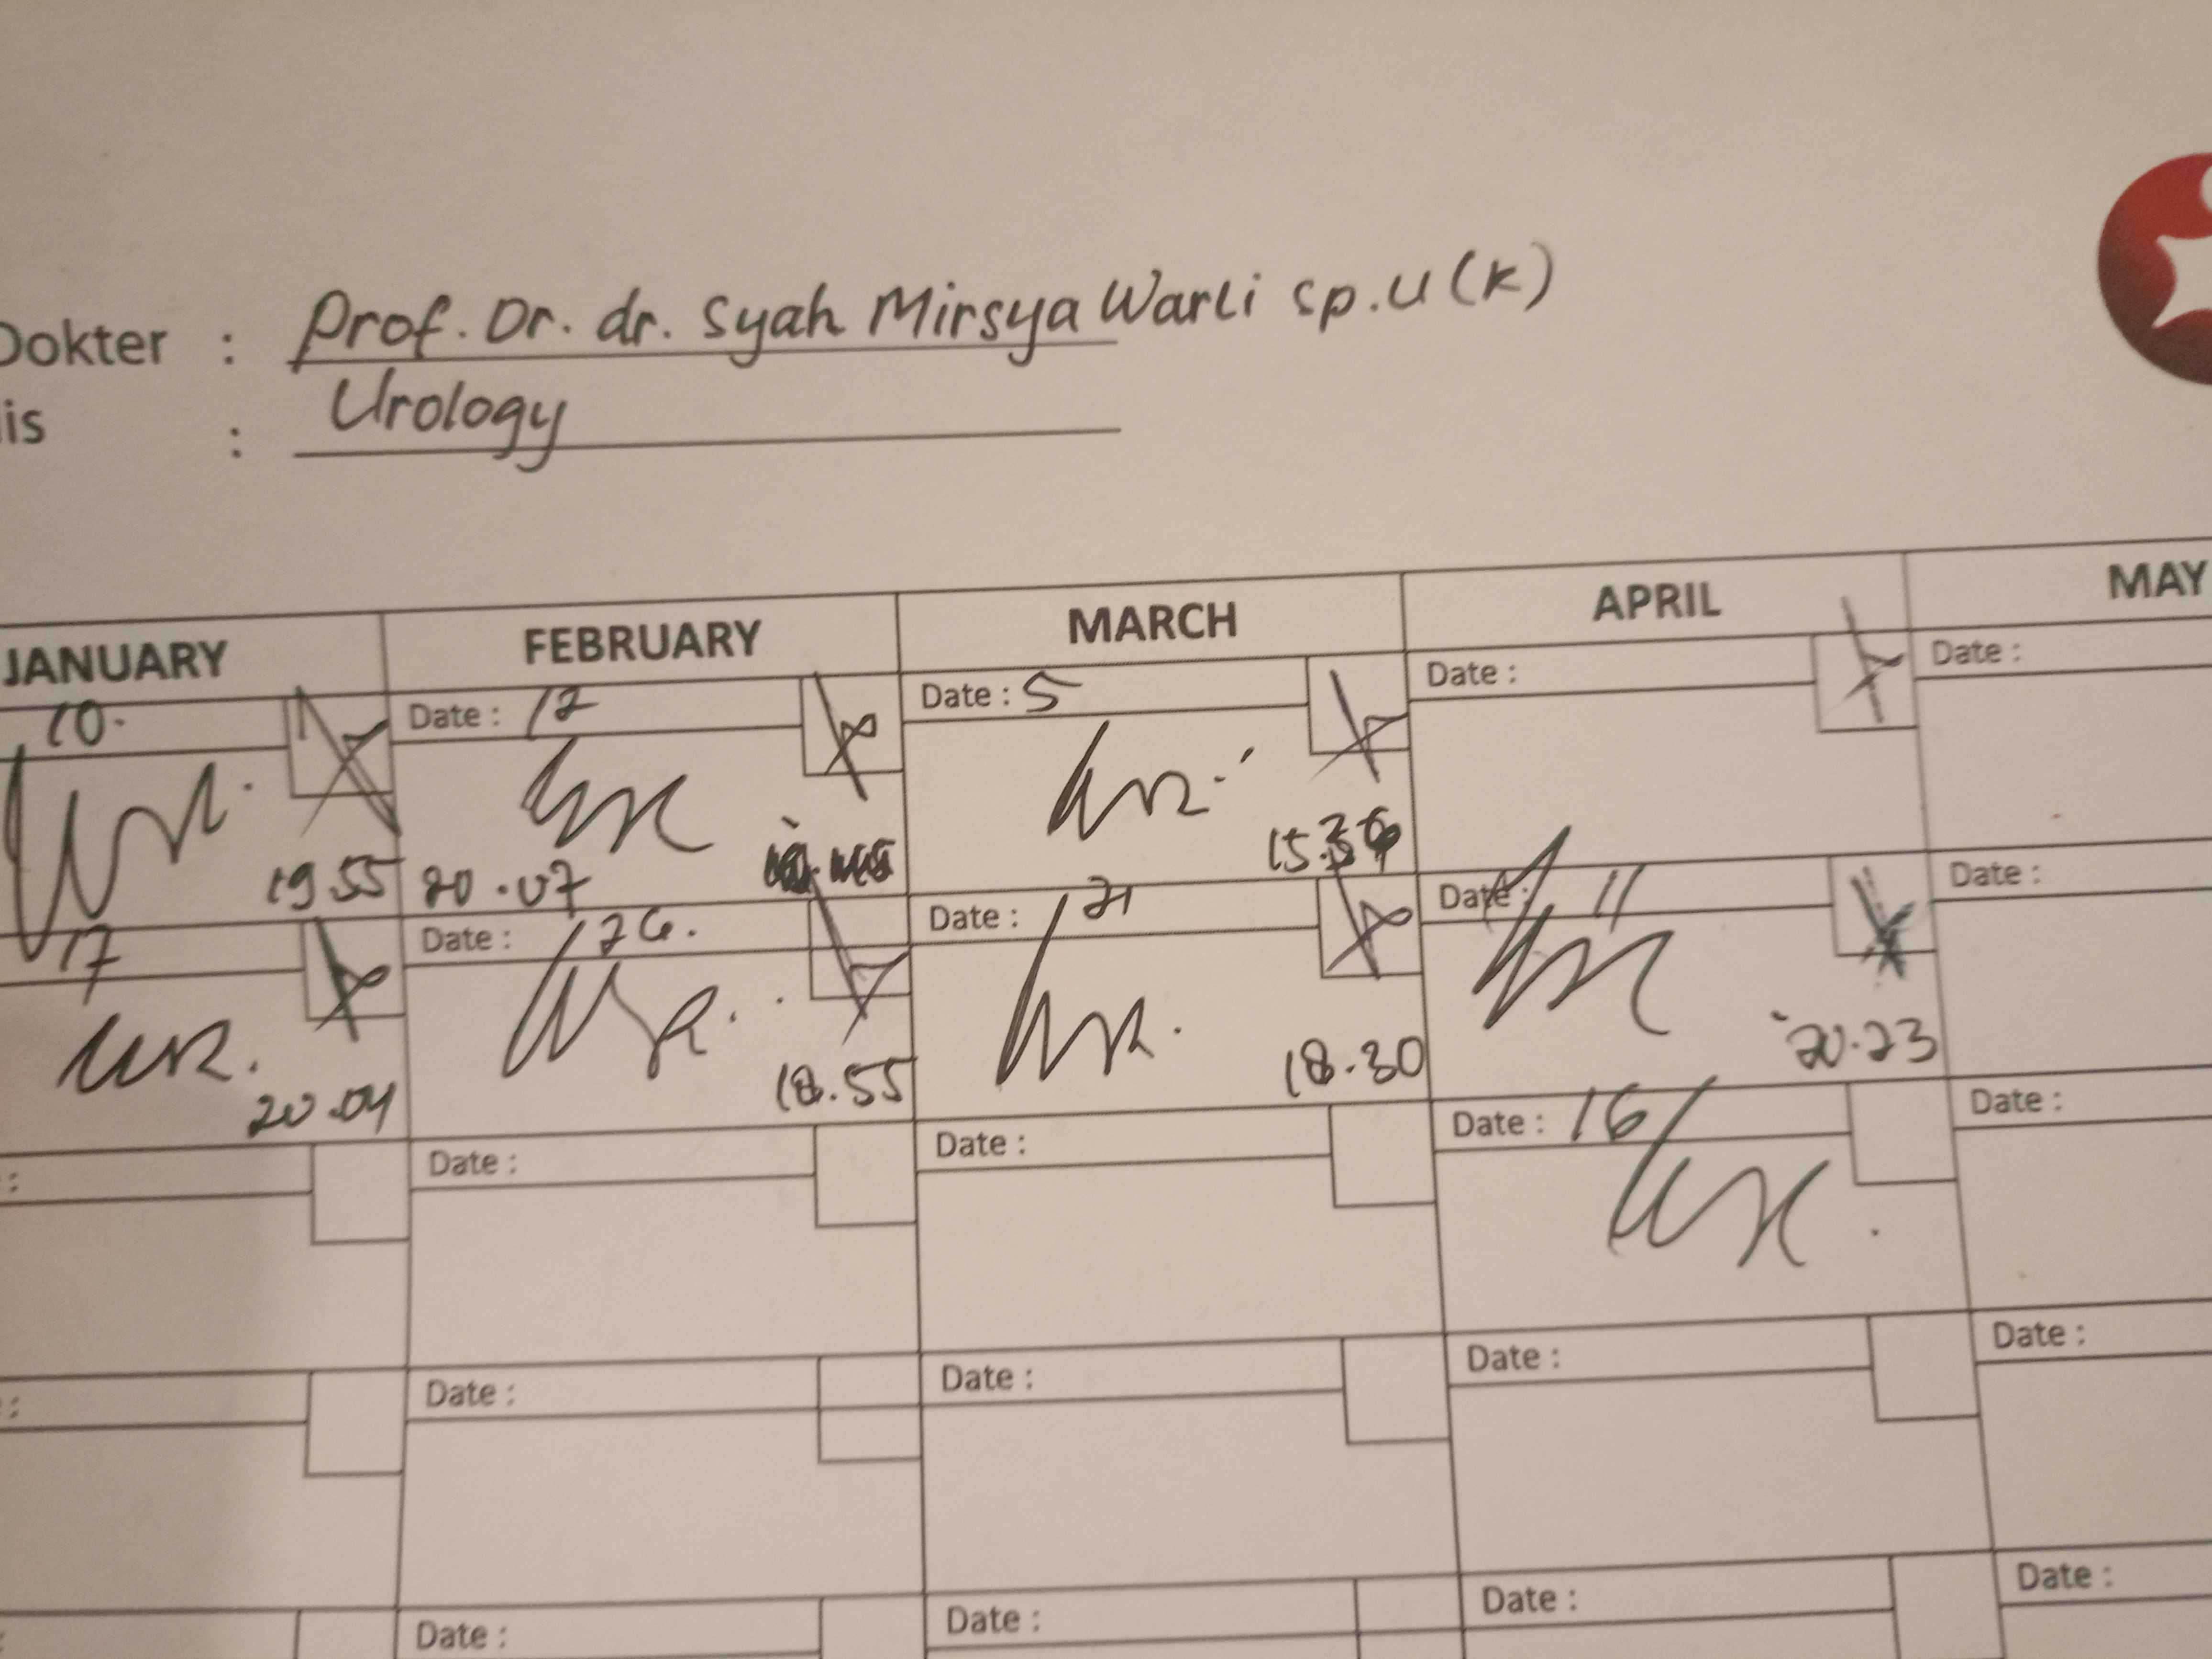 Dokter : Prof. Dr. dr. Syah Mirsya Warli sp.U (K)
is : Urology
JANUARY FEBRUARY MARCH APRIL MAY
10. Date : 12 Date : 5 Date : Date :
19.55 20.07 15.36
17 Date : 26. Date : 21 Date : 11 Date :
20.04 18.55 18.30 20.23
: Date : Date : Date : 16 Date :
: Date : Date : Date : Date :
: Date : Date : Date : Date :